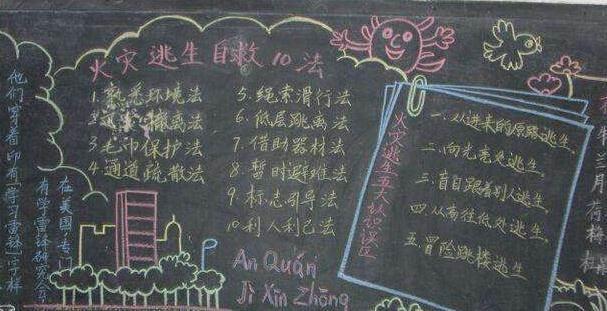 火灾逃生自救10法
1.熟悉环境法
2.迅速撤离法
3毛巾保护法
4.通道疏散法
5.绳索滑行法
6.低层跳离法
7.借助器材法
8.暂时避难法
9.标志引导法
10利人利己法
An Quán
Jì Xīn Zhōng
火灾逃生五大
误区
一.从进来的原路逃生
二.向光亮处逃生
三.盲目跟着别人逃生
四.从高往低处逃生
五冒险跳楼逃生
在美国专门
有学雷锋研究会
他们穿着印有“学习雷锋”字样